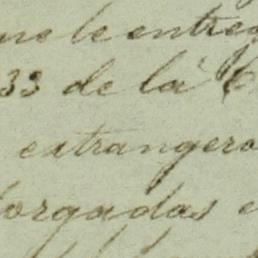 me le entreg
33 de la C
extrangero
torgadas e